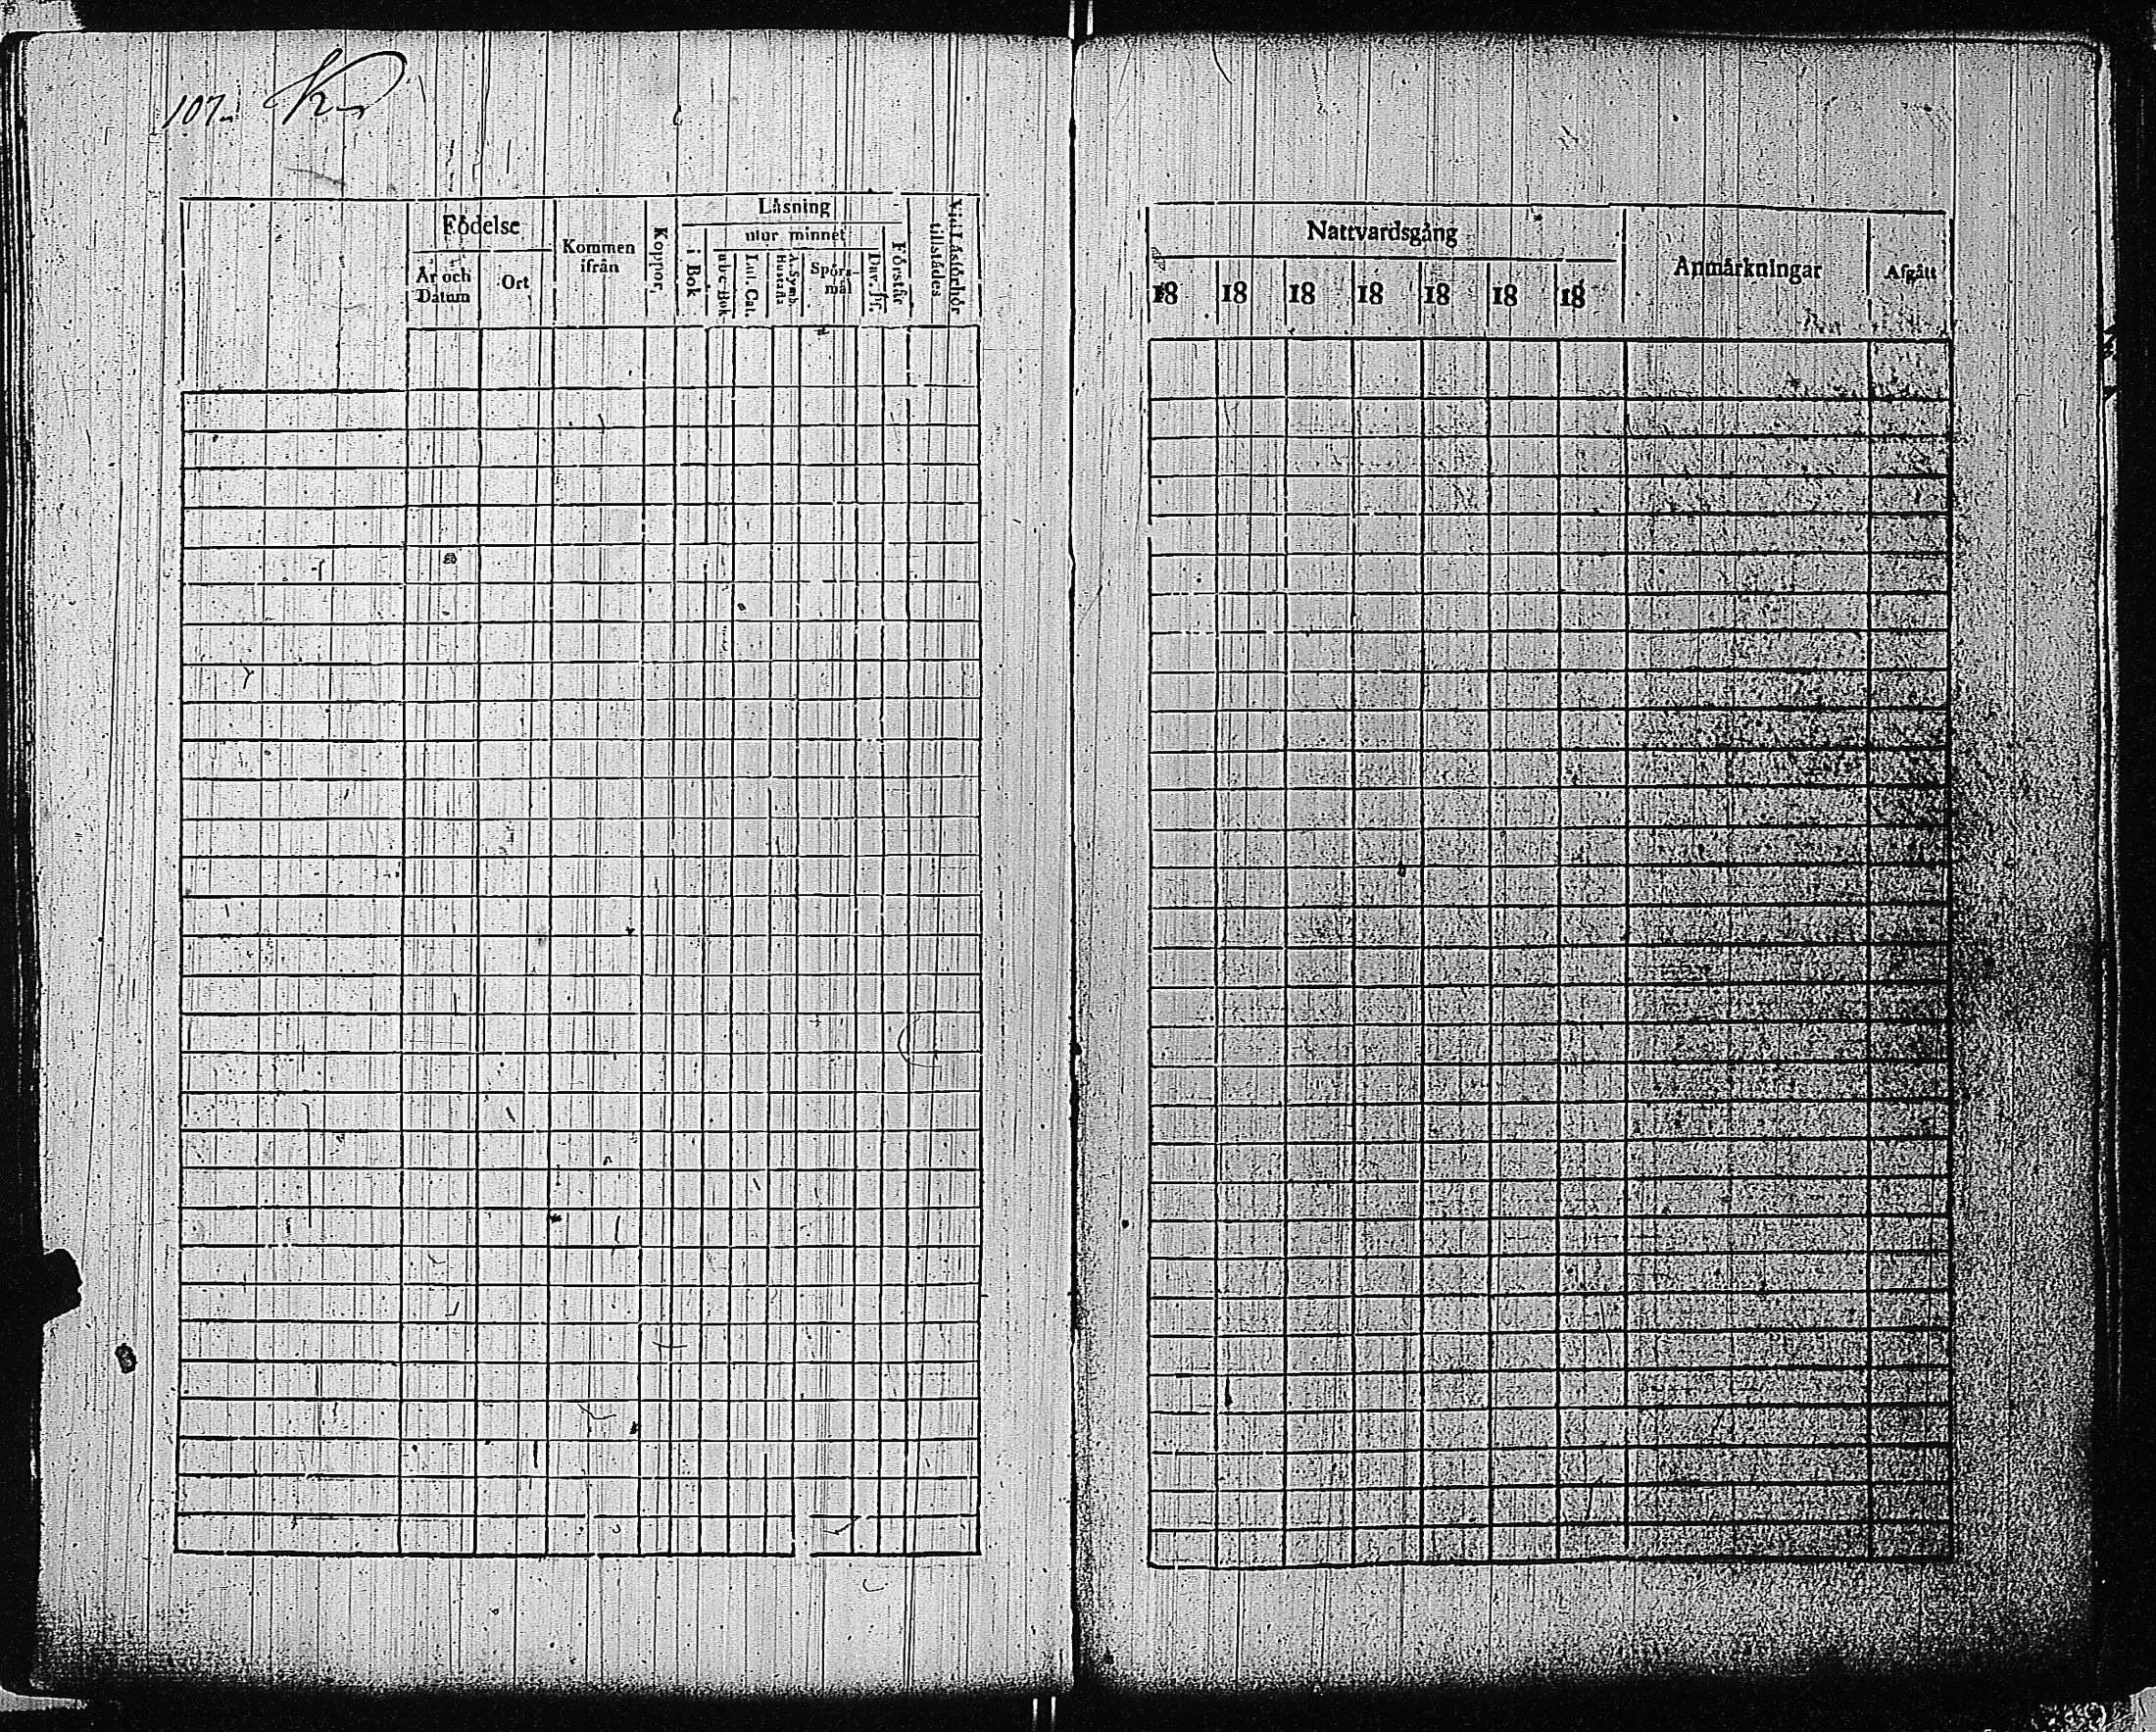 107.
Födelse
År och Datum
Ort
Kommen ifrån
Koppor,
Läsning
i Bok
utur minnet
a b c-Bok
Lut. Cat.
A. Symb. Hustafla
Spörs-mål
Dav. Ps.
Förstår
Vid Läsförhör tillstädes
Nattvardsgång
18 18 18 18 18 18 18
Anmärkningar
Afgått